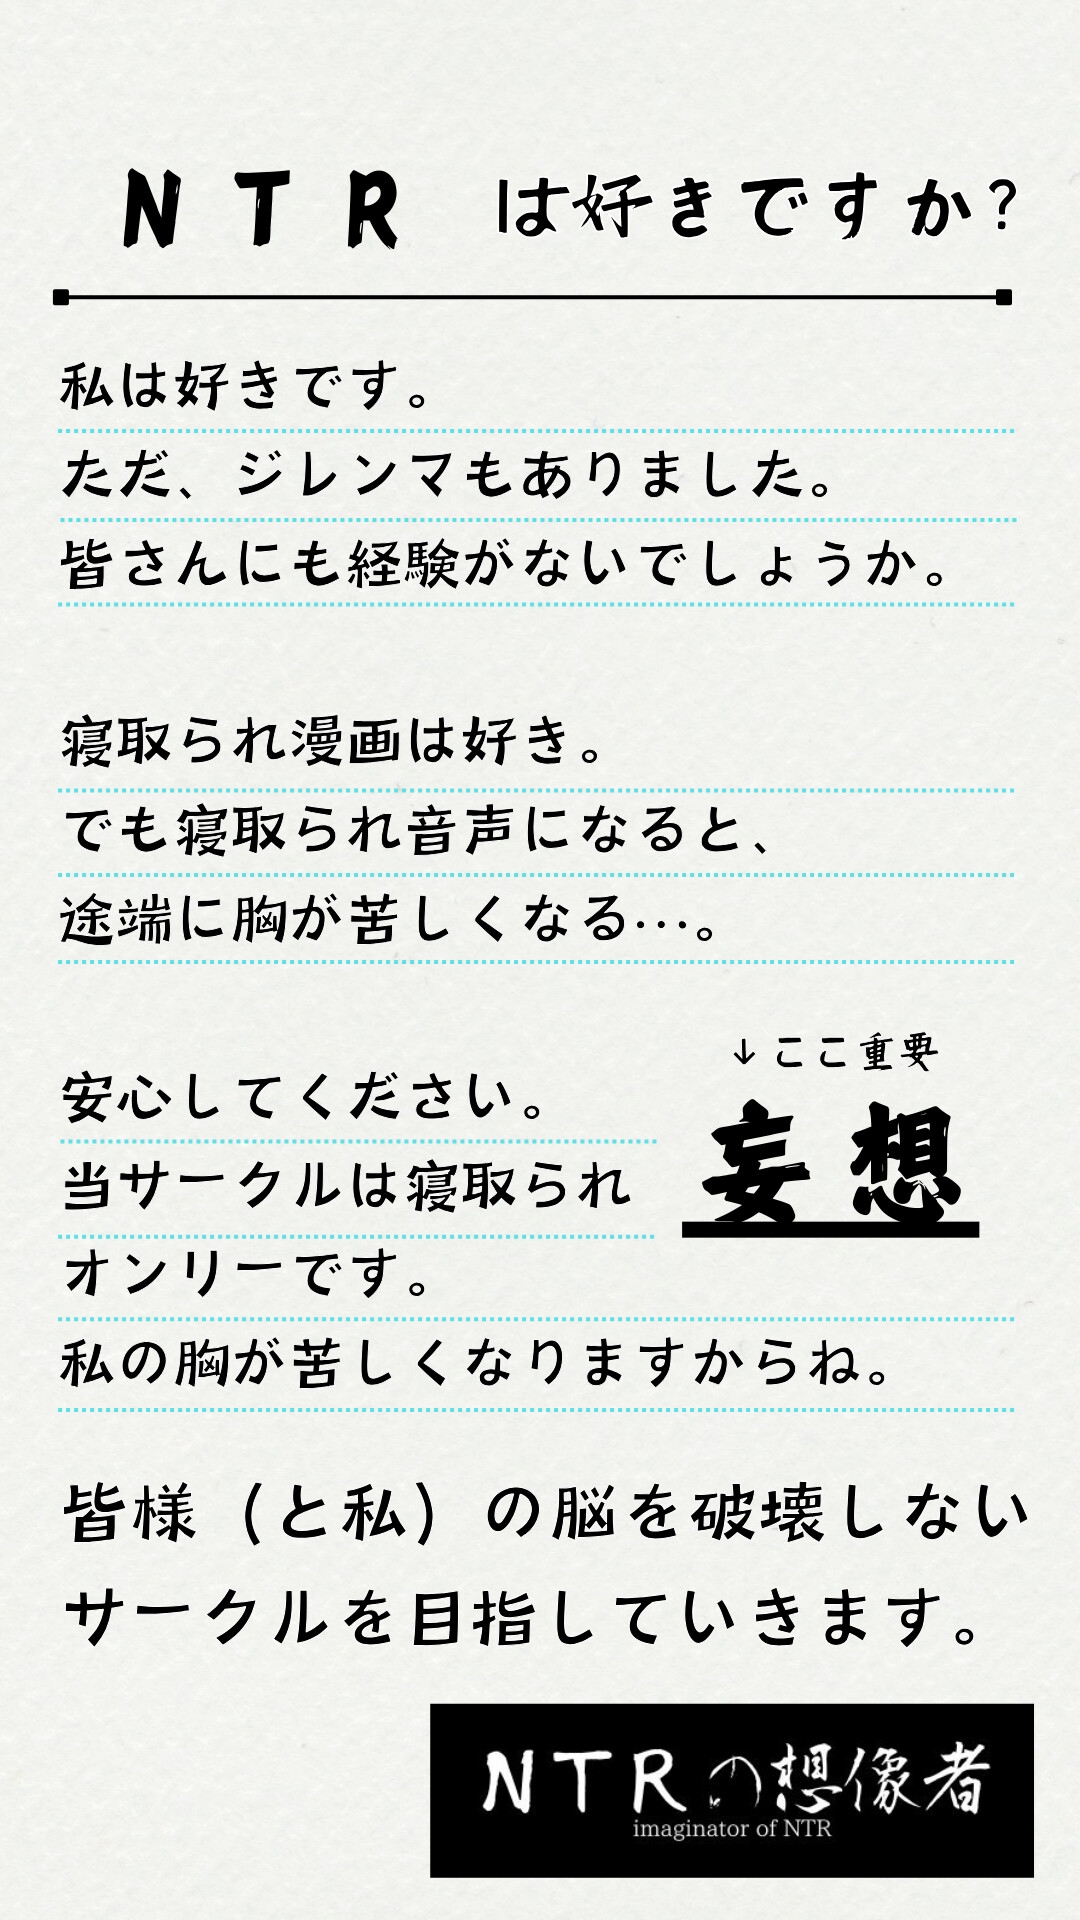 NTR は好きですか?
私は好きです。
ただ、ジレンマもありました。
皆さんにも経験がないでしょうか。
寝取られ漫画は好き。
でも寝取られ音声になると、
途端に胸が苦しくなる…。
安心してください。
↓ここ重要
当サークルは寝取られ 妄想
オンリーです。
私の胸が苦しくなりますからね。
皆様（と私）の脳を破壊しない
サークルを目指していきます。
NTRの想像者
imaginator of NTR